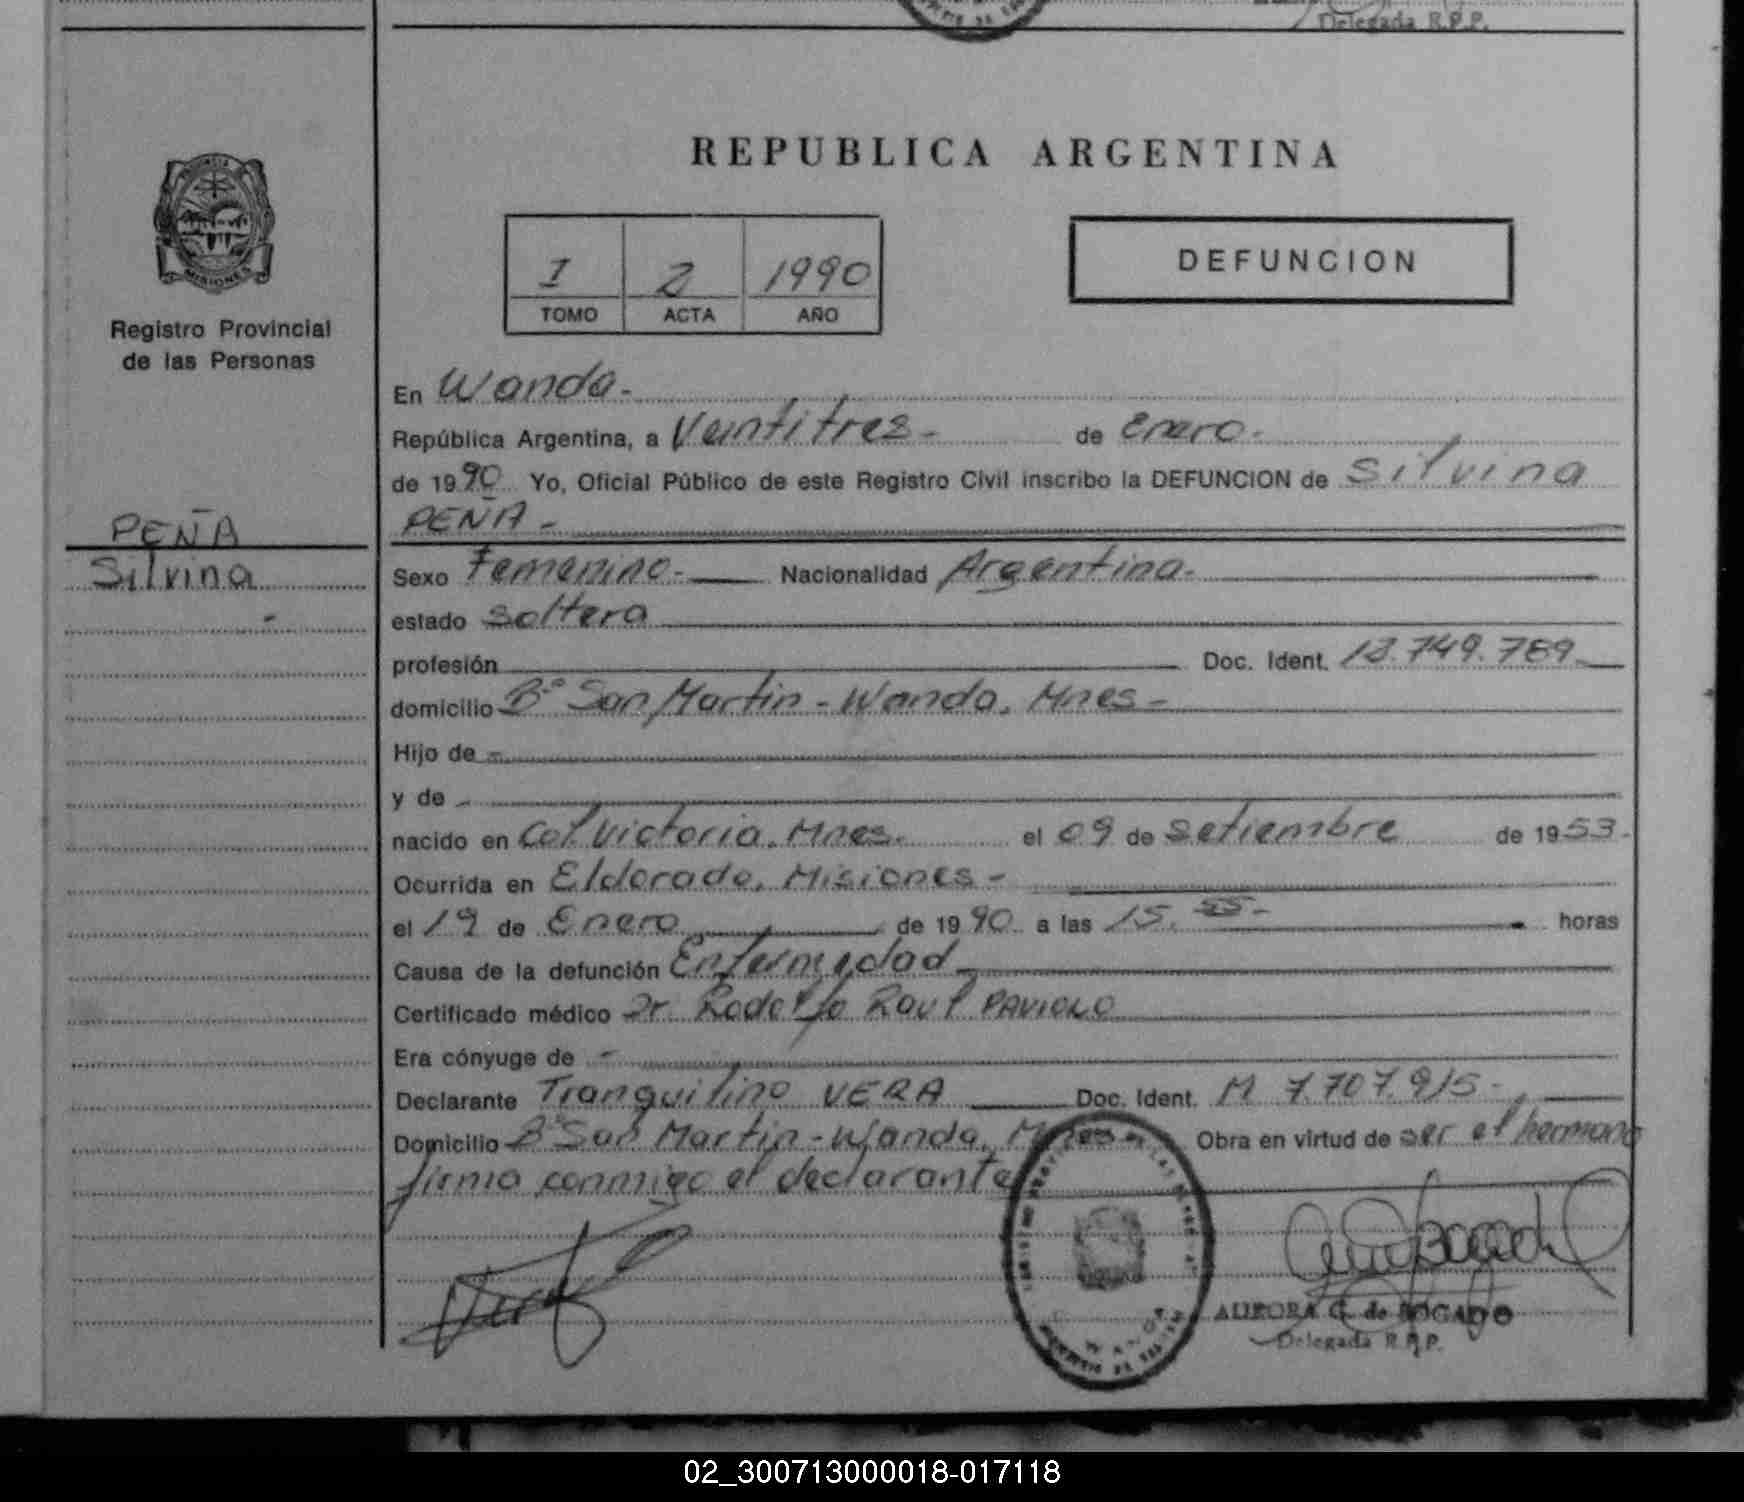 Delegada R.P.P.
REPUBLICA ARGENTINA
PROVINCIA
MISIONES
Registro Provincial
de las Personas
I 2 1990
TOMO ACTA AÑO
DEFUNCION
En Wanda.-
República Argentina, a Veintitres.- de Enero.-
de 1990 Yo, Oficial Público de este Registro Civil inscribo la DEFUNCION de Silvina
PEÑA.-
PEÑA
Silvina
-
Sexo Femenino.- Nacionalidad Argentina.-
estado soltera
profesión Doc. Ident. 13.749.789-
domicilio Bº San Martin - Wanda. Mnes-
Hijo de -
y de -
nacido en Col. Victoria. Mnes. el 09 de setiembre de 1953.-
Ocurrida en Eldorado, Misiones-
el 19 de Enero de 1990 a las 15.55- horas
Causa de la defunción Enfermedad
Certificado médico Dr. Rodolfo Raul PAVIOLO
Era cónyuge de -
Declarante Tranquilino VERA Doc. Ident. M 7.707.915-
Domicilio Bº San Martin - Wanda. Mnes- Obra en virtud de ser el hermano
firma conmigo el declarante
AURORA G. de BOGADO
Delegada R.P.P.
WANDA
02_300713000018-017118